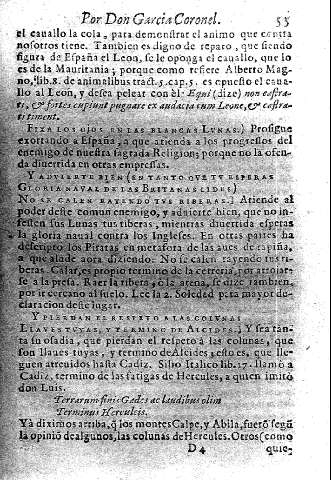 Por Don Garcia Coronel. 55
el cauallo la cola, para demonstrar el animo que contra
nosotros tiene. Tambien es digno de reparo, que siendo
figura de España el Leon, se le oponga el cauallo, que lo
es de la Mauritania; porque como refiere Alberto Mag-
no, lib.8. de animalibus tract.5.cap.5. es opuesto el caua-
llo al Leon, y desea pelear con el: Equi (dize) non castra-
ti, & fortes cupiunt pugnare ex audacia cum Leone, & castra-
ti timent.
FIXA LOS OJOS EN LAS BLANCAS LVNAS.) Prosigue
exortando a España, a que atienda a los progressos del
enemigo de nuestra sagrada Religion; porque no la ofen-
da diuertida en otras empressas.
Y ADVIERTE BIEN (EN TANTO QVE TV ESPERAS
GLORIA NAVAL DE LAS BRITANAS LIDES)
NO SE CALEN RAYENDO TVS RIBERAS.] Atiende al
poder deste comun enemigo, y aduierte bien, que no in-
festen sus Lunas tus riberas, mientras diuertida esperas
la gloria naual contra los Ingleses. En otras partes ha
descripto los Piratas en metafora de las aues de rapiña,
a que alude aora diziendo: No se calen rayendo tus ri-
beras. Calar, es propio termino de la cetreria, por arrojar-
se a la presa. Raer la ribera, ò la arena, se dize tambien,
por ir cercano al suelo. Lee la 2. Soledad para mayor de-
claracion deste lugar.
Y PIERDAN EL RESPETO A LAS COLVNAS
LLAVES TVYAS, Y TERMINO DE ALCIDES.] Y sea tan-
ta su osadia, que pierdan el respeto à las colunas, que
son llaues tuyas, y termino de Alcides, esto es, que lle-
guen atreuidos hasta Cadiz. Silio Italico lib.17. llamò a
Cadiz, termino de las fatigas de Hercules, a quien imitò
don Luis.
Terrarum finis Gades ac laudibus olim
Terminus Herculeis.
Ya diximos arriba, q̃ los montes Calpe, y Abila, fuerõ segũ
la opiniõ de algunos, las colunas de Hercules. Otros (como
D 4 quie-